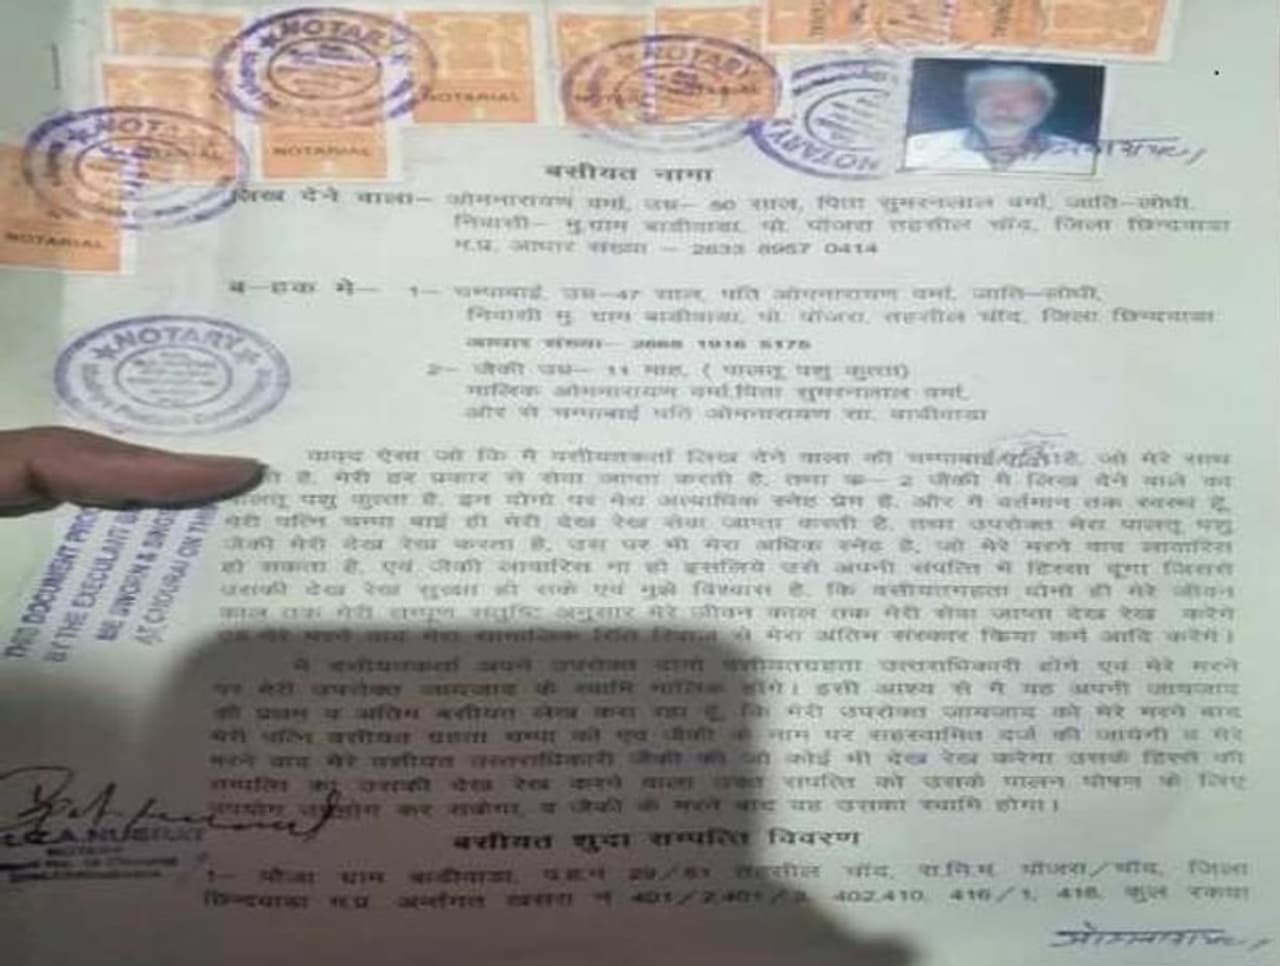 NOTARY
NOTARY
NOTARY
NOTARY
NOTARIAL
NOTARIAL
NOTARIAL
NOTARIAL
बसीयत नामा
लिख देने वाला– ओमनारायण वर्मा, उम्र– 50 साल, पिता सुमरनलाल वर्मा, जाति–लोधी,
निवासी– मु.ग्राम बाडीवाडा, पो. पोंजरा तहसील चाँद, जिला छिन्दवाडा
म.प्र. आधार संख्या –
ब–हक मे– 1– चम्पाबाई, उम्र–47 साल, पति ओमनारायण वर्मा, जाति–लोधी,
निवासी मु. ग्राम बाडीवाडा, पो. पोंजरा, तहसील चाँद, जिला छिन्दवाडा
आधार संख्या–
2– जैकी उम्र– 11 माह, ( पालतू पशु कुत्ता)
मालिक ओमनारायण वर्मा पिता सुमरनलाल वर्मा,
और से चम्पाबाई पति ओमनारायण सा. बाडीवाडा
NOTARY
जो कि मै वसीयतकर्ता लिख देने वाला की चम्पाबाई पत्नि है, जो मेरे साथ
है, मेरी हर प्रकार से सेवा जाप्ता करती है, तथा क– 2 जैकी मै लिख देने वाले का
पालतू पशु कुत्ता है, इन दोनो पर मेरा अत्याधिक स्नेह प्रेम है, और मै वर्तमान तक स्वस्थ हूँ,
मेरी पत्नि चम्पा बाई ही मेरी देख रेख सेवा जाप्ता करती है, तथा उपरोक्त मेरा पालतू पशु
जैकी मेरी देख रेख करता है, उस पर भी मेरा अधिक स्नेह है, जो मेरे मरने बाद लावारिस
हो सकता है, एवं जैकी लावारिस ना हो इसलिये उसे अपनी संपत्ति मे हिस्सा दूंगा जिससे
उसकी देख रेख सुरक्षा हो सके एवं मुझे विश्वास है, कि वसीयतग्रहता दोनो ही मेरे जीवन
काल तक मेरी सम्पूण संतुष्टि अनुसार मेरे जीवन काल तक मेरी सेवा जाप्ता देख रेख करेंगे
एवं मेरे मरने बाद मेरा सामाजिक रिति रिवाज से मेरा अंतिम संस्कार किया कर्म आदि करेंगे।
THIS DOCUMENT
BY THE EXECUTANT
BE SWORN &
AT CHOURAI ON
मै वसीयतकर्ता अपने उपरोक्त दोनो वसीयतग्रहता उत्तराधिकारी होंगे एवं मेरे मरने
पर मेरी उपरोक्त जायजाद के स्वामि मालिक होंगे। इसी आश्य से मै यह अपनी जायजाद
की प्रथम व अंतिम बसीयत लेख करा रहा हूँ, कि मेरी उपरोक्त जायजाद को मेरे मरने बाद
मेरी पत्नि वसीयत ग्रहता चम्पा को एवं जैकी के नाम पर सहस्वामित दर्ज की जायेगी व मेरे
मरने बाद मेरे वसीयत उत्तराधिकारी जैकी की जो कोई भी देख रेख करेगा उसके हिस्से की
सम्पत्ति का उसकी देख रेख करने वाला उक्त संपत्ति को उसके पालन पोषण के लिए
उपयोग उपभोग कर सकेगा, व जैकी के मरने बाद वह उसका स्वामि होगा।
NOTARY
बसीयत शुदा सम्पत्ति विवरण
1– मौजा ग्राम बाडीवाडा, प.ह.नं 29/51 तहसील चाँद, रा.नि.म. पोंजरा/चाँद, जिला
छिन्दवाडा म.प्र. अर्न्तगत खसरा नं 401/2,401/3, 402,410, 416/1, 418, कुल रकवा
ओमनारायण